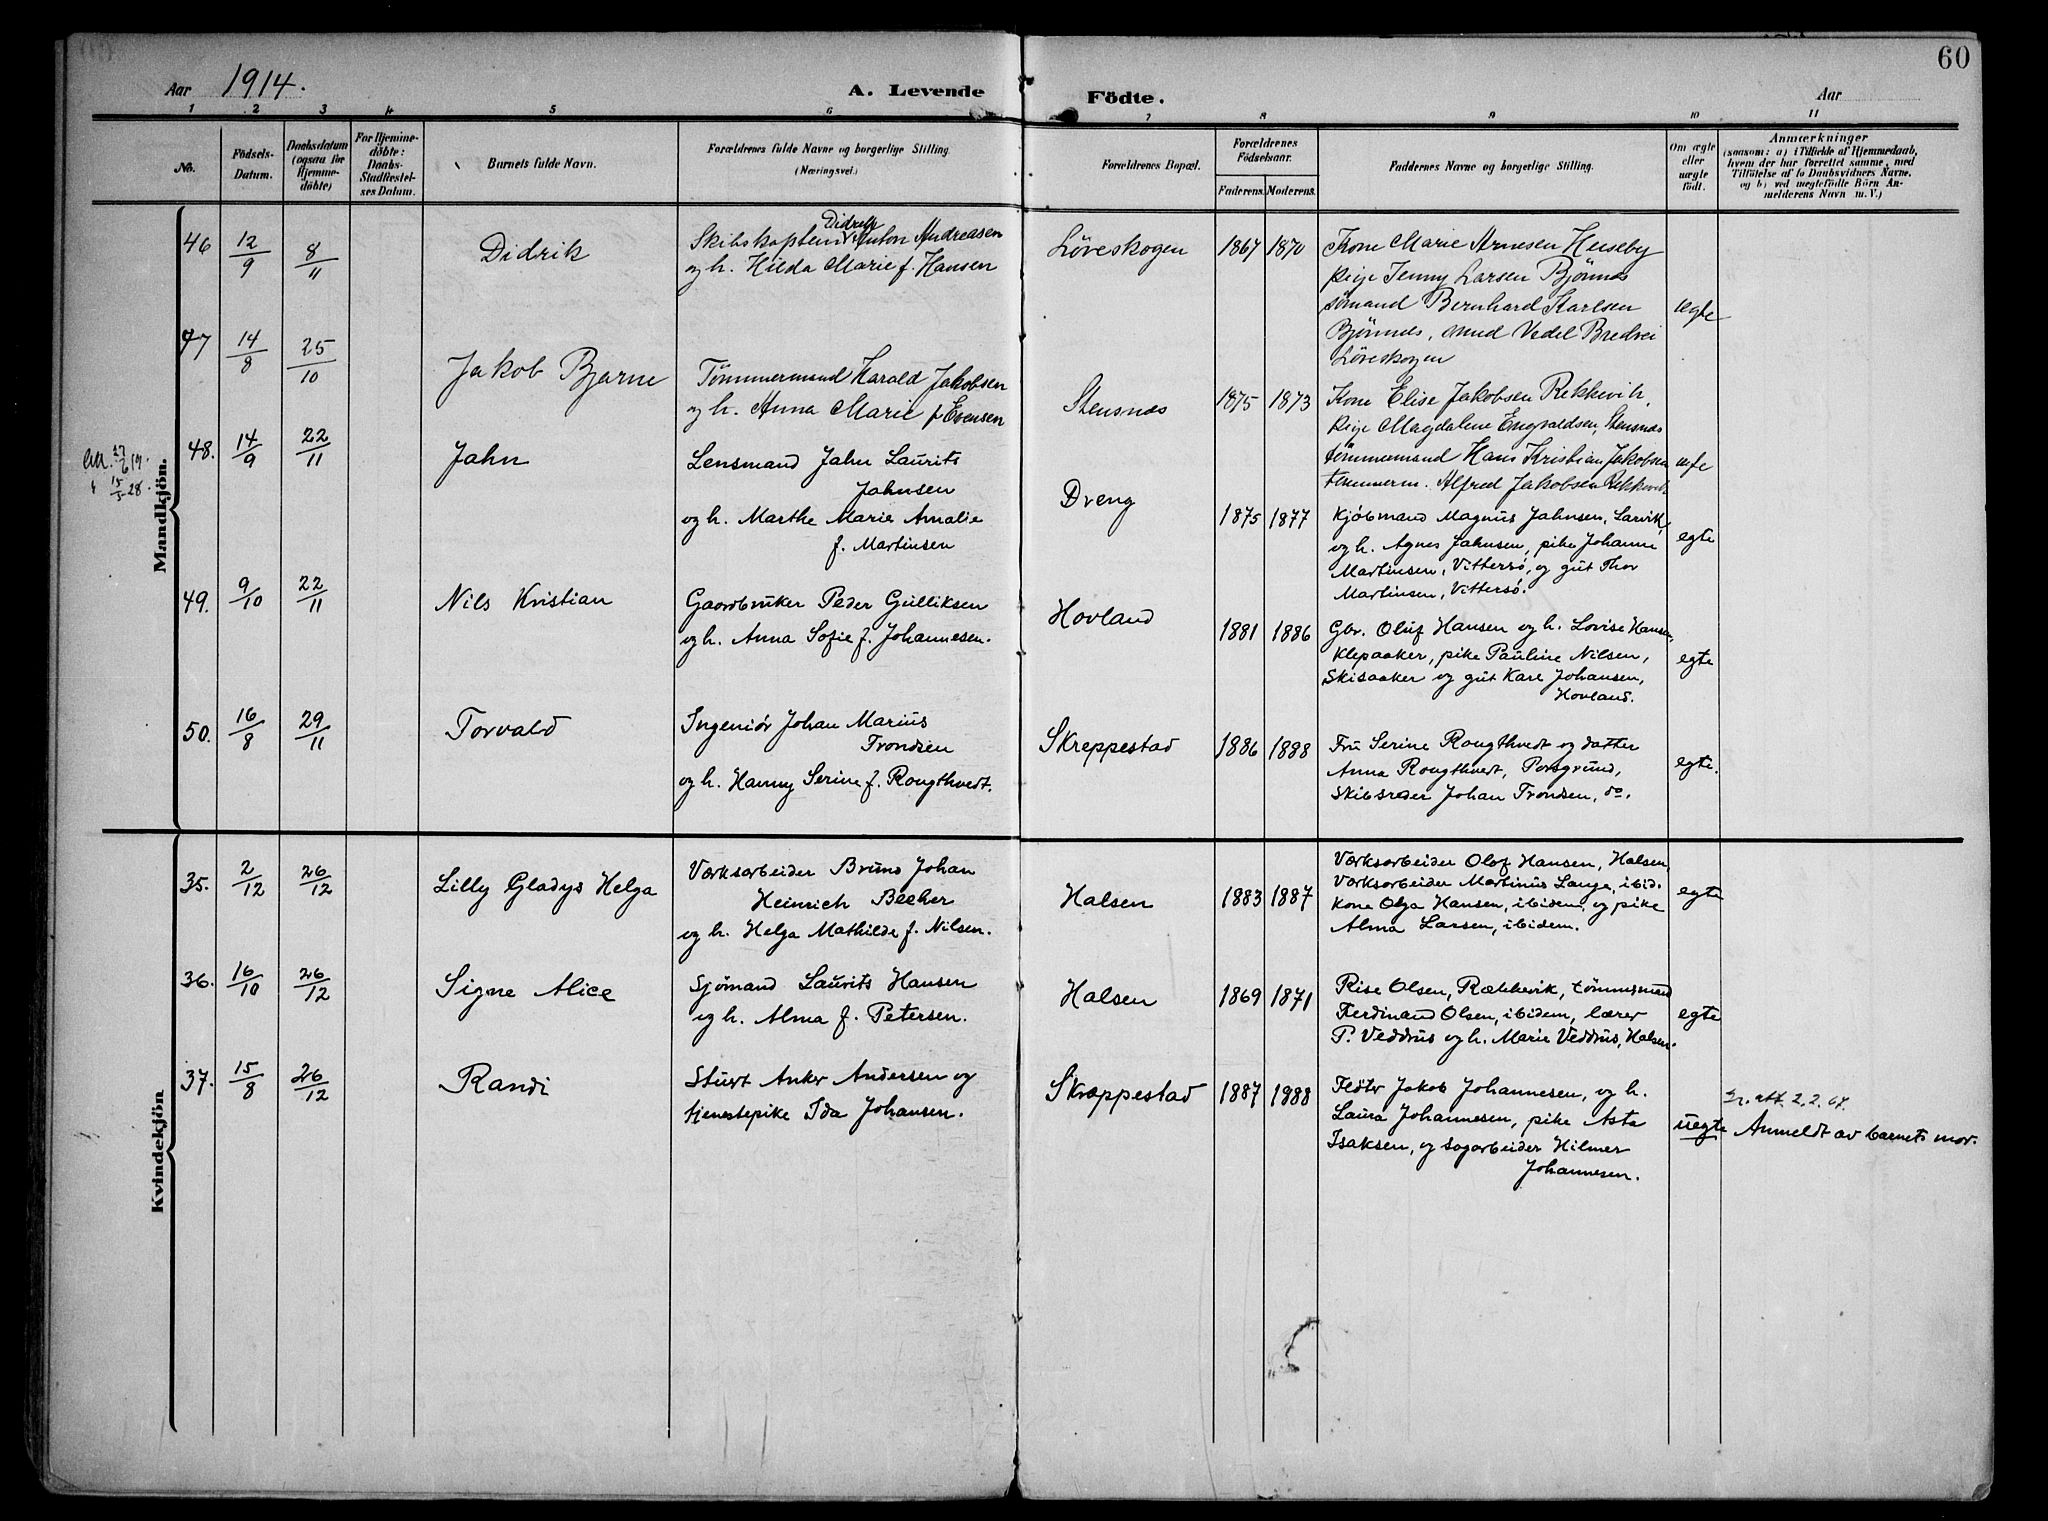 60
Aar 1914. A. Levende Födte. Aar
1 2 3 4 5 6 7 8 9 10 11
No.
Födsels-
Datum.
Daabsdatum
(ogsaa for
Hjemme-
döbte)
For Hjemme-
döbte:
Daabs-
Stadfæstel-
ses Datum.
Barnets fulde Navn.
Forældrenes fulde Navne og borgerlige Stilling.
(Næringsvei.)
Forældrenes Bopæl.
Forældrenes
Födselsaar.
Faderens. Moderens.
Faddernes Navne og borgerlige Stilling.
Om ægte
eller
uægte
födt.
Anmærkninger
(saasom: a) i Tilfælde af Hjemmedaab,
hvem der har forrettet samme, med
Tilföielse af to Daabsvidners Navne.
og b) ved uegtefödte Börn An-
melderens Navn m. V.)
Mandkjön.
46 12/9 8/11 Didrik
Skibskaptein Didrik Anton Andreasen
og h. Hilda Marie f. Hansen
Löveskogen 1867 1870
Kone Marie Arnesen Huseby
pige Jenny Larsen Bjönnes
sömand Bernhard Karlsen
Bjönnes, smed Vedel Bredvei
Löveskogen
ægte
47 14/8 25/10 Jakob Bjarne
Tömmermand Harald Jakobsen
og h. Anna Marie f Evensen
Stensnæs 1875 1873
Kone Elise Jakobsen Rekkevik,
pige Magdalene Engvaldsen, Stensnæs
tömmermand Hans Kristian Jakobsen
tømmerm. Alfred Jakobsen Rekkevik
48. 14/9 22/11 Jahn
Lensmand Jahn Laurits
Jahnsen
og h. Marthe Marie Amalie
f. Martinsen
Dreng 1875 1877
Kjøbmand Magnus Jahnsen, Larvik,
og h. Agnes Jahnsen, pike Johanne
Martinsen, Vittersø, og gut Thor
Martinsen, Vittersø.
egte
49. 9/10 22/11 Nils Kristian
Gaardbruker Peder Gulliksen
og h. Anna Sofie f. Johannesen.
Hovland 1881 1886
Gbr. Oluf Hansen og h. Lovise Hansen,
Klepaaker, pike Pauline Nilsen,
Skisaaker og gut Kare Johansen,
Hovland.
egte
50. 16/8 29/11 Torvald
Ingeniør Johan Marius
Trondsen
og h. Hanny Serine f. Rougthvedt.
Skreppestad 1886 1888
Fru Serine Rougthvedt og datter
Anna Rougthvedt, Porsgrund,
Skibsreder Johan Trondsen, do.
egte.
Kvindekjön
35. 2/12 26/12 Lilly Gladys Helga
Værksarbeider Bruno Johan
Heinrich Becher
og h. Helga Mathilde f. Nilsen.
Halsen 1883 1887
Værksarbeider Olof Hansen, Halsen,
Værksarbeider Martinus Lange, ibid.
Kone Olga Hansen, ibidem, og pike
Alma Larsen, ibidem.
egte
36. 16/10 26/12 Signe Alice
Sjømand Laurits Hansen
og h. Alma f. Petersen.
Halsen 1869 1871
Rise Olsen, Rækkevik, tømmermand
Ferdinand Olsen, ibidem, lærer
P. Veddrus og h. Marie Veddrus, Halsen.
egte
37. 15/8 26/12 Randi
Stuert Anker Andersen og
tjenestepike Ida Johansen.
Skræppestad 1887 1988
Fløter Jakob Johannesen, og h.
Laura Johannesen, pike Asta
Isaksen, og sagarbeider Hilmer
Johannesen.
uegte
att. 2.2.67.
Anmeldt av barnets mor.